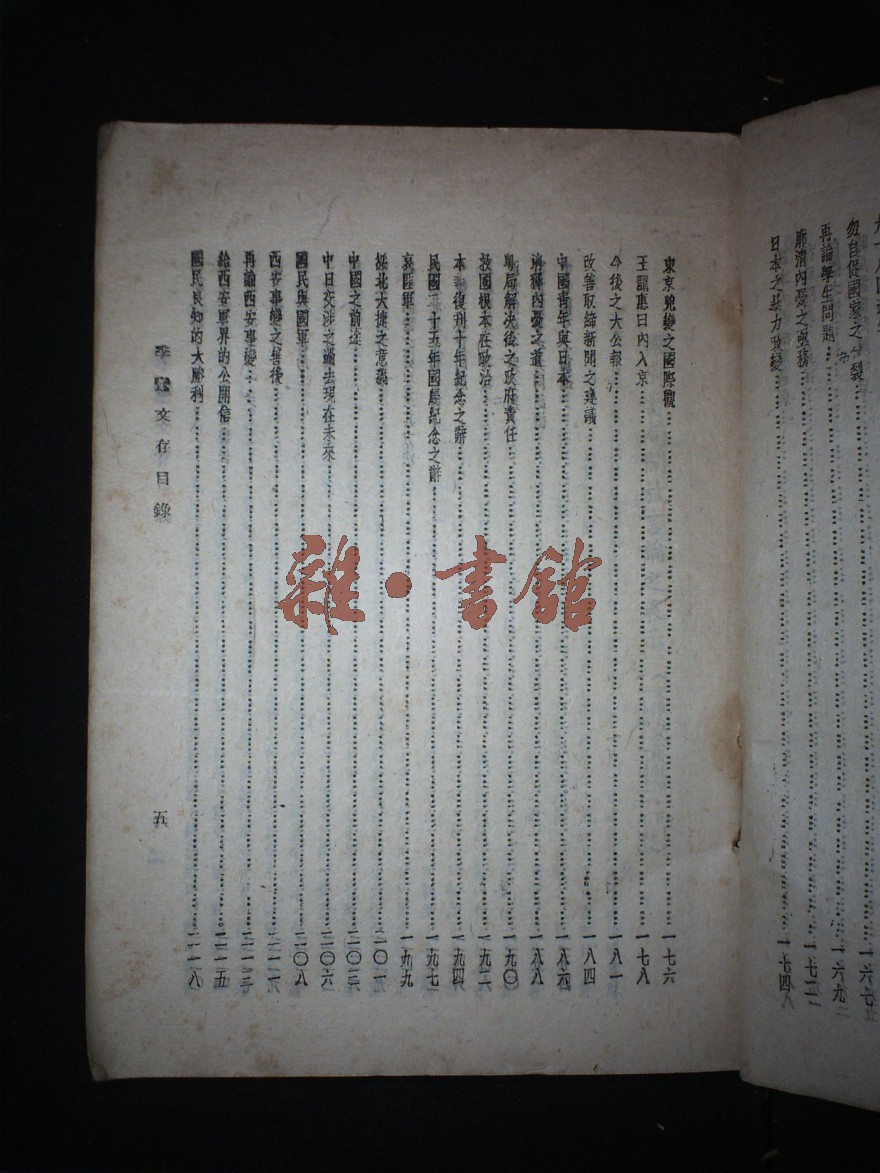 勿自促國家之分裂……一六七
再論學生問題……一六九
廓清內憂之亟務……一七二
日本之暴力政變……一七四
東京兵變之國際觀……一七六
王寵惠日內入京……一七八
今後之大公報……一八一
改善取締新聞之建議……一八四
中國青年與日本……一八六
消釋內憂之道……一八八
粵局解決後之政府責任……一九〇
救國根本在政治……一九二
本報復刊十年紀念之辭……一九四
民國二十五年國慶紀念之辭……一九七
哀匪軍……一九九
綏北大捷之意義……二〇一
中國之前途……二〇三
中日交涉之過去現在未來……二〇六
國民與國軍……二〇八
西安事變之善後……二一一
再論西安事變……二一三
給西安軍界的公開信……二一五
國民良知的大勝利……二一八
季鸞文存目錄
五
雜·書館